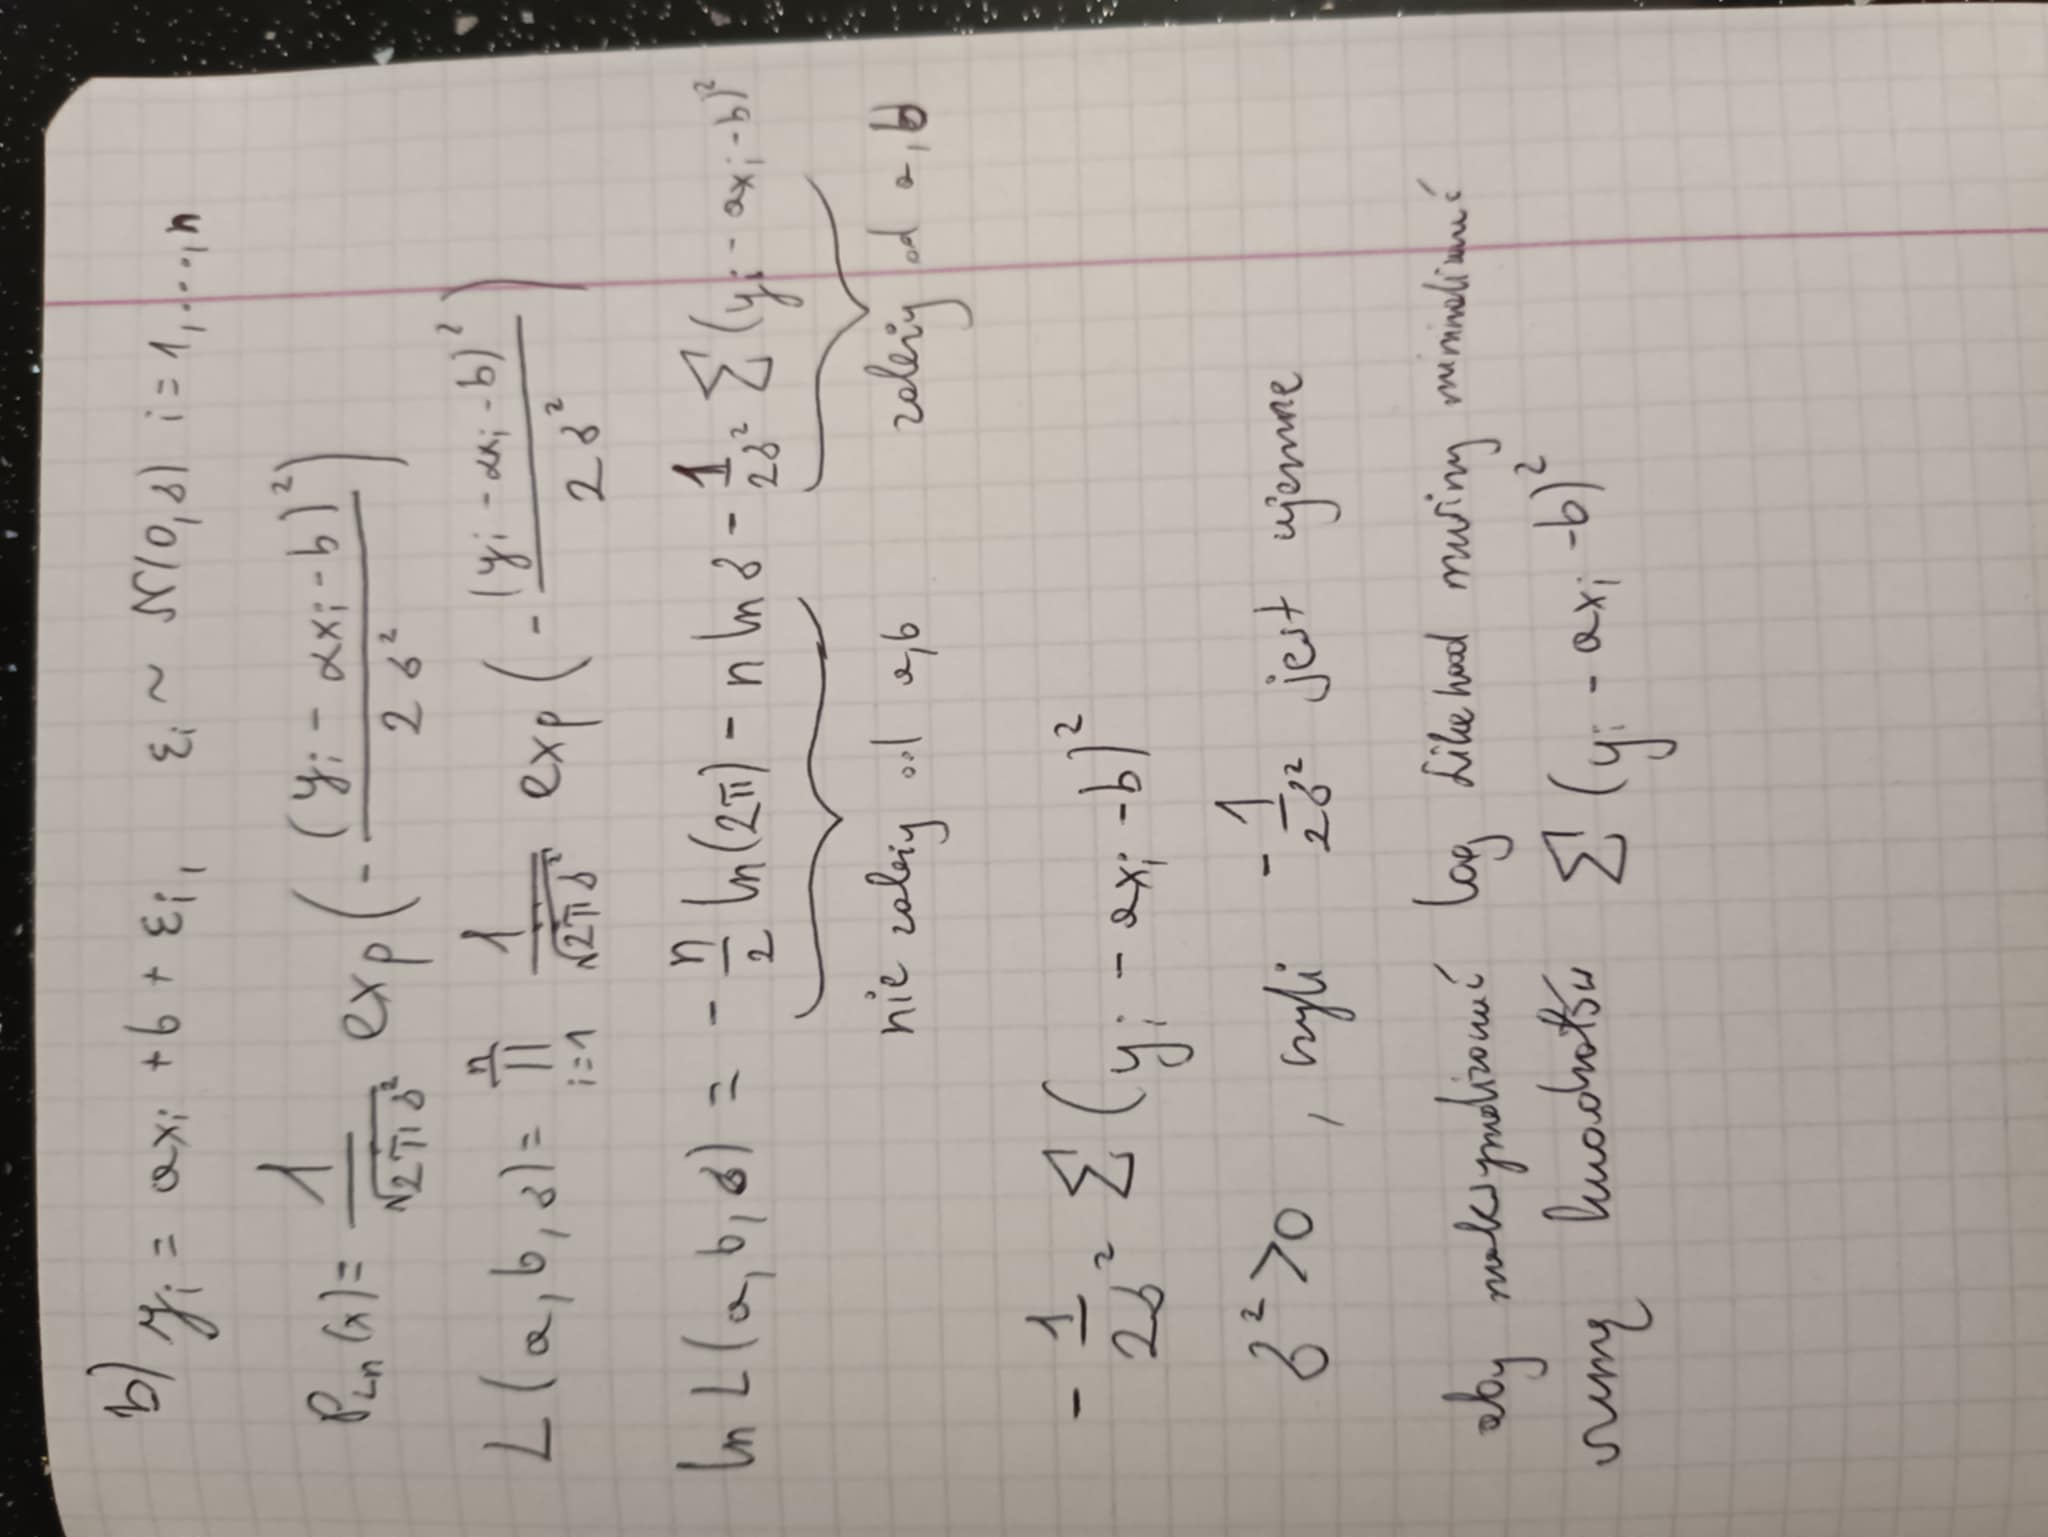 b) y_i = ax_i + b + ε_i, ε_i ~ N(0,σ) i=1,...,n
P_{Ln}(x) = 1/√(2πσ²) exp(-(y_i - αx_i - b)²/2σ²)
L(a,b,σ) = ∏_{i=1}^{n} 1/√(2πσ²) exp(-(y_i - αx_i - b)²/2σ²)
ln L(a,b,σ) = -n/2 ln(2π) - n ln σ - 1/2σ² Σ(y_i - ax_i - b)²
nie zależy od a,b zależy od a,b
-1/2σ² Σ(y_i - ax_i - b)²
σ² > 0, czyli -1/2σ² jest ujemne
aby maksymalizować log Likehood musimy minimalizować
sumę kwadratów Σ(y_i - ax_i - b)²